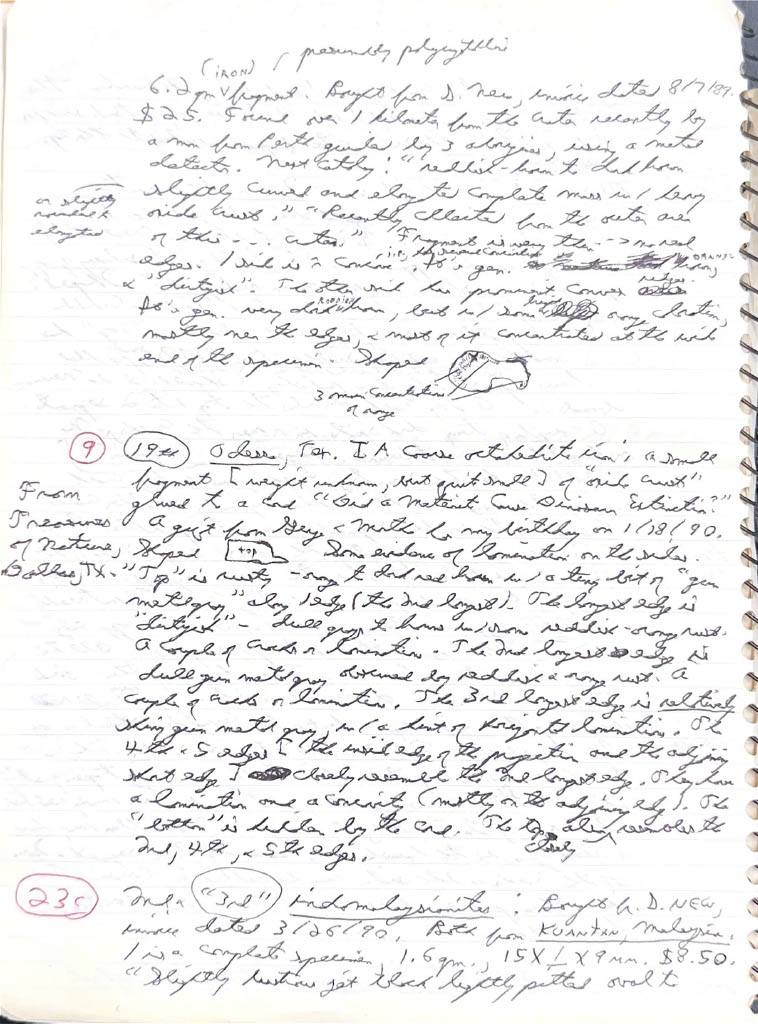 (IRON) / presumably polycrystalline
6.2 gm fragment. Bought from D. New, invoice dated 8/7/89.
$25. Found over 1 kilometer from the crater recently by
a man from Perth guided by 3 aborigines, using a metal
detector. New catalog: "reddish-brown to dark brown
slightly curved and elongated complete mass w/ heavy
oxide crust." "Recently collected from the outer area
of this ... crater." Fragment is very thin --> no real
or slightly
elongated
edges. 1 side is concave. It's gen.
& "dirtyish". The other side has prominent convex
It's gen. very dark brown, but w/ some orangy coloration,
mostly near the edges, & most of it concentrated at the wide
end of the specimen. Shaped
3 main concentrations
of orange
(9) (19th) Odessa, Tex. IA Coarse octahedrite iron; a small
fragment [weight unknown, but quite small] of "oxide crust"
glued to a card "Did a Meteorite Cause Dinosaur Extinction?"
From
Treasures
of Nature,
Dallas, TX.
A gift from Gary & Martha for my birthday on 1/18/90.
Shaped TOP Some evidence of lamination on the sides.
"Top" is rusty-orangy to dark red brown w/ a tiny bit of "gun
metal gray" along 1 edge (the 2nd longest). The longest edge is
"dirtyish" - dull gray to brown w/ some reddish-orangy rust.
A couple of cracks or lamination. The 2nd longest edge is
dull gun metal gray obscured by reddish & orangy rust. A
couple of cracks or lamination. The 3rd longest edge is relatively
shiny gun metal gray, w/ a hint of horizontal lamination. The
4th & 5 edges [the inside edge of the projection and the adjoining
short edge] closely resemble the 2nd longest edge. They have
a lamination and a concavity (mostly on the adjoining edge). The
"bottom" is hidden by the card. The top also closely resembles the
2nd, 4th, & 5th edges.
(23c) 2nd & ("3rd") indomalaysianites: Bought fr. D. NEW,
invoice dated 3/26/90. Both from KUANTAN, Malaysia.
1 is a complete specimen, 1.6 gm., 15 X 1 X 9 mm. $8.50.
"Slightly lustrous jet black lightly pitted oval to